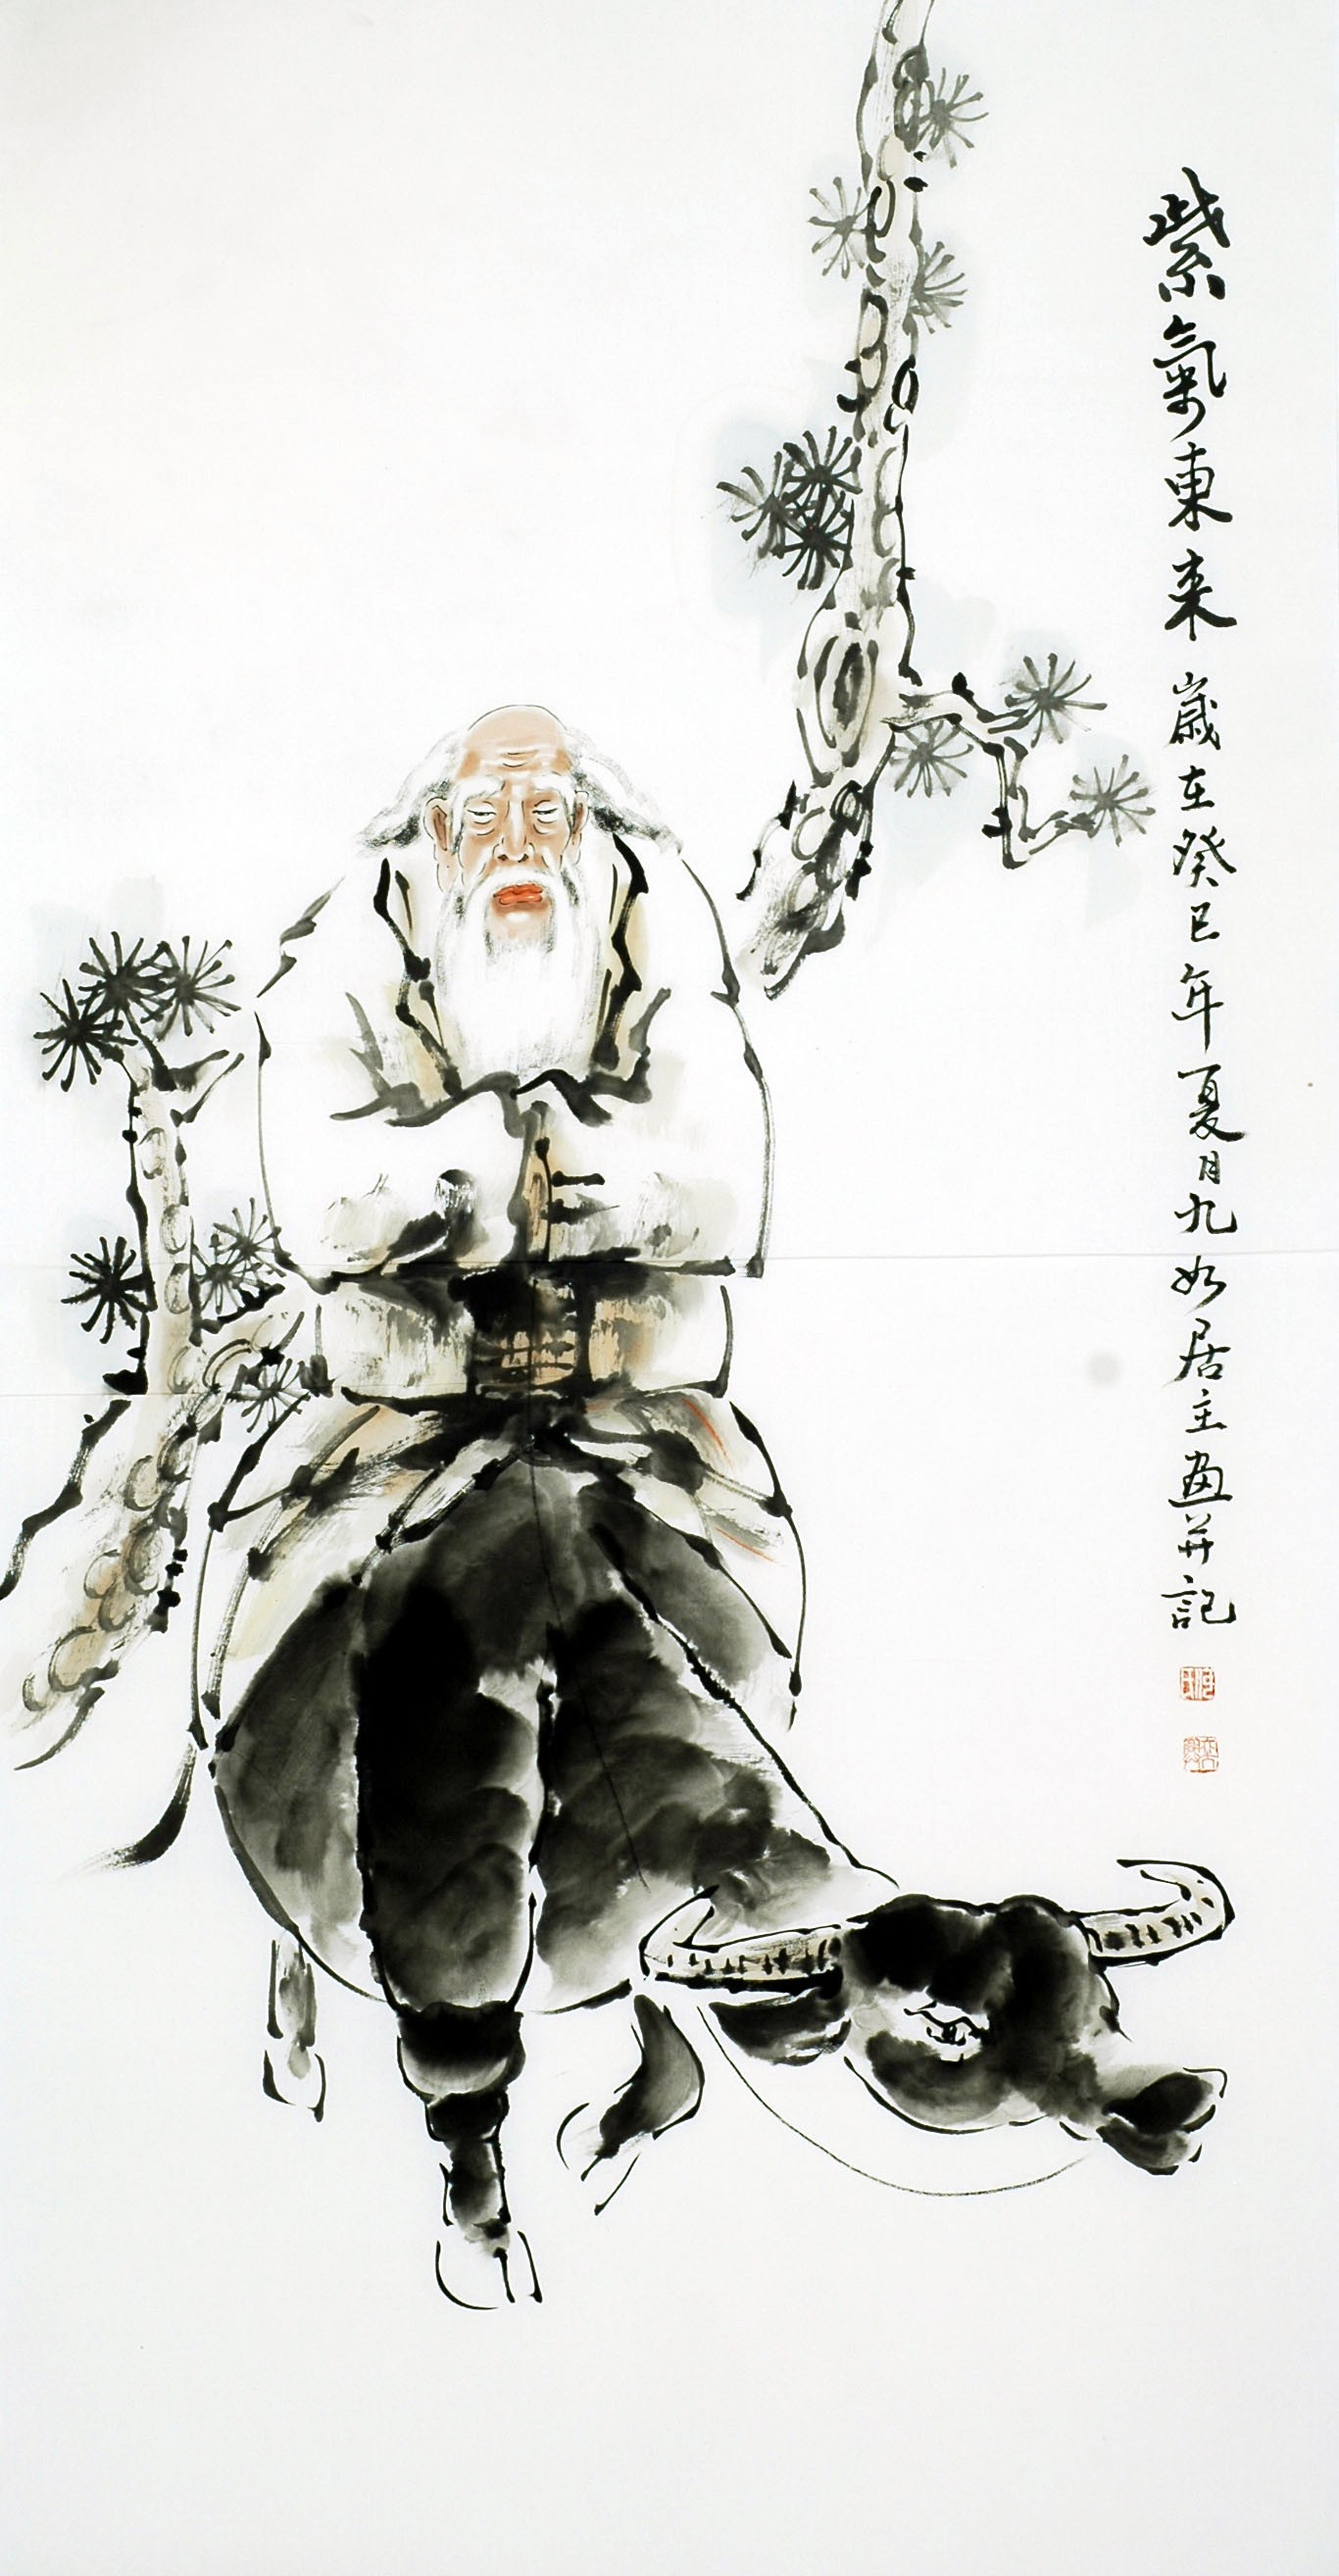 紫氣東来歲在癸巳年夏月九如居主畫并記